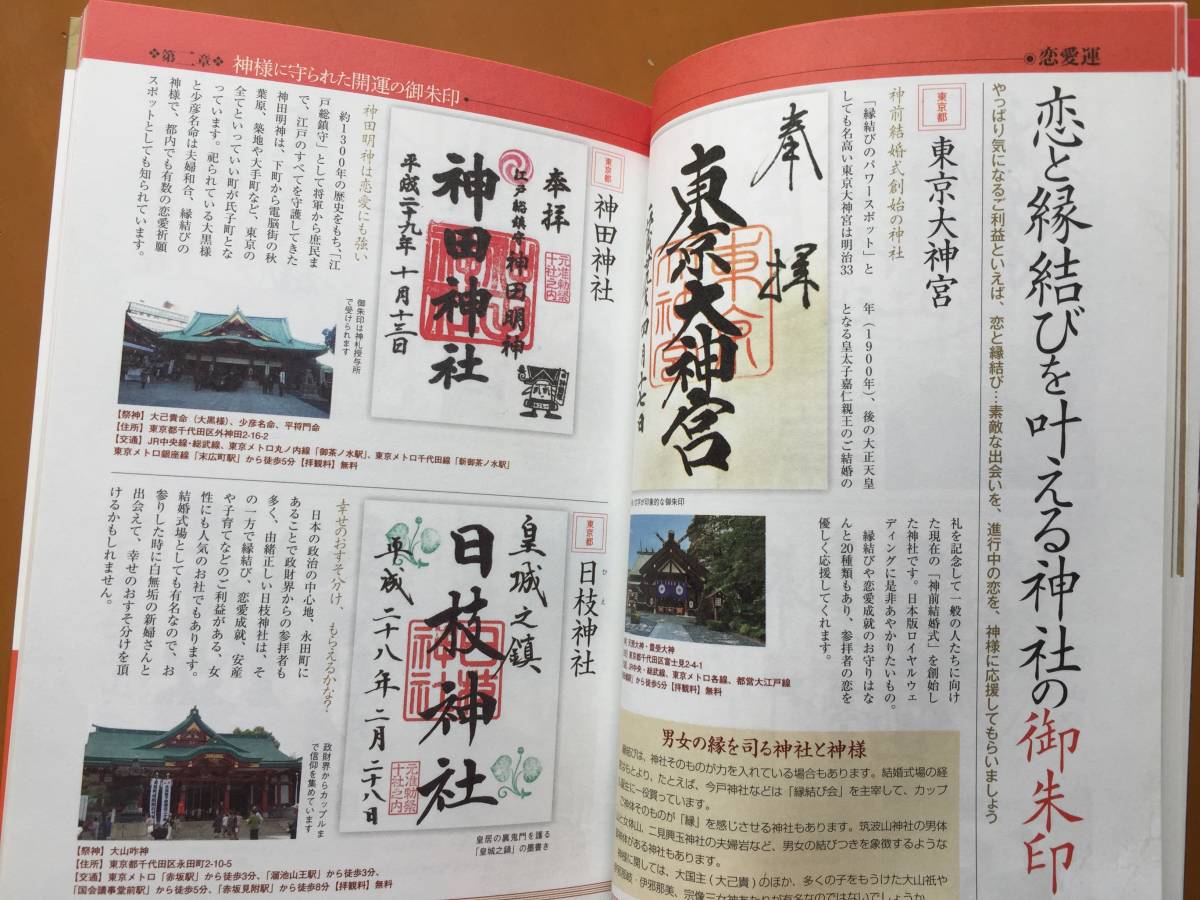 ◉恋愛運
恋と縁結びを叶える神社の御朱印
やっぱり気になるご利益といえば、恋と縁結び…素敵な出会いを、進行中の恋を、神様に応援してもらいましょう
東京都
東京大神宮
神前結婚式創始の神社
「縁結びのパワースポット」と
しても名高い東京大神宮は明治33
年(1900年)、後の大正天皇
となる皇太子嘉仁親王のご結婚の
礼を記念して一般の人たちに向け
た現在の「神前結婚式」を創始し
た神社です。日本版ロイヤルウェ
ディングに是非あやかりたいもの。
縁結びや恋愛成就のお守りはな
んと20種類もあり、参拝者の恋を
優しく応援してくれます。
奉拝
東京大神宮
文字が印象的な御朱印
天照大神・豊受大神
東京都千代田区富士見2-4-1
JR中央・総武線、東京メトロ各線、都営大江戸線
から徒歩5分【拝観料】無料
男女の縁を司る神社と神様
は、神社そのものが力を入れている場合もあります。結婚式場の経
はもとより、たとえば、今戸神社などは「縁結び会」を主宰して、カップ
誕生に一役買っています。
神体そのものが「縁」を感じさせる神社もあります。筑波山神社の男体
と女体山、二見興玉神社の夫婦岩など、男女の結びつきを象徴するような
神体がある神社もあります。
神様に関しては、大国主(大己貴)のほか、多くの子をもうけた大山祇や
伊邪那岐・伊邪那美、宗像三女神あたりが有名なのではないでしょうか。
❖第二章❖ 神様に守られた開運の御朱印
東京都
神田神社
奉拝
江戸総鎮守 神田明神
元准勅祭
十社之内
神田神社
平成二十九年 十月十三日
御朱印は神札授与所
で受けられます
神田明神は恋愛にも強い
約1300年の歴史をもち、「江
戸総鎮守」として将軍から庶民ま
で、江戸のすべてを守護してきた
神田明神は、下町から電脳街の秋
葉原、築地や大手町など、東京の
全てといっていい町が氏子町とな
っています。祀られている大黒様
と少彦名命は夫婦和合、縁結びの
神様で、都内でも有数の恋愛祈願
スポットとしても知られています。
【祭神】大己貴命(大黒様)、少彦名命、平将門命
【住所】東京都千代田区外神田2-16-2
【交通】JR中央線・総武線、東京メトロ丸ノ内線「御茶ノ水駅」、東京メトロ千代田線「新御茶ノ水駅」
東京メトロ銀座線「末広町駅」から徒歩5分【拝観料】無料
東京都
日枝神社
ひえ
皇城之鎮
日枝神社
平成二十八年 二月二十八日
元准勅祭
十社之内
皇居の裏鬼門を護る
「皇城之鎮」の墨書き
幸せのおすそ分け、もらえるかな?
日本の政治の中心地、永田町に
あることで政財界からの参拝者も
多く、由緒正しい日枝神社は、そ
の一方で縁結び、恋愛成就、安産
や子育てなどのご利益がある、女
性にも人気のお社でもあります。
結婚式場としても有名なので、お
参りした時に白無垢の新婦さんと
出会えて、幸せのおすそ分けを頂
けるかもしれません。
政財界からカップルま
で信仰を集めています
【祭神】大山咋神
【住所】東京都千代田区永田町2-10-5
【交通】東京メトロ「赤坂駅」から徒歩3分、「溜池山王駅」から徒歩3分、
「国会議事堂前駅」から徒歩5分、「赤坂見附駅」から徒歩8分【拝観料】無料